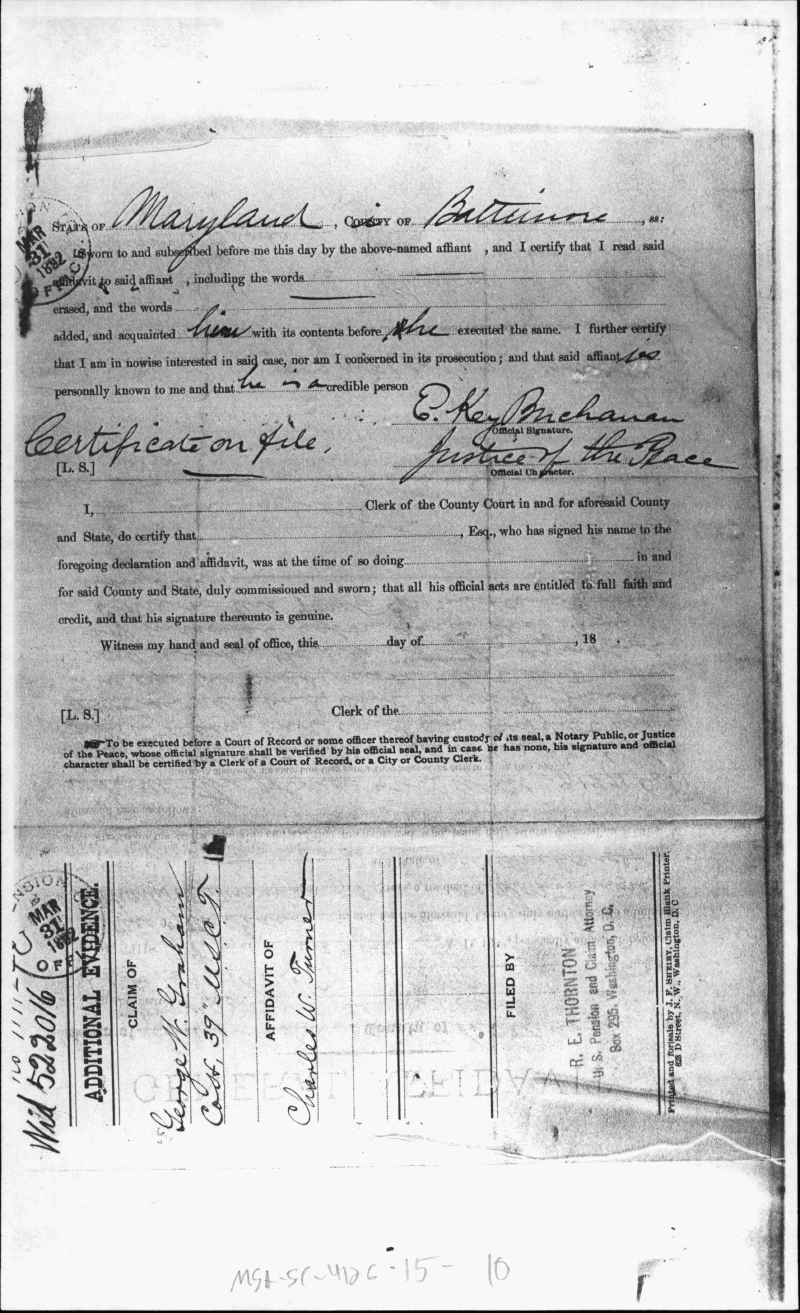 STATE OF Maryland, COUNTY OF Baltimore, ss:
Sworn to and subscribed before me this day by the above-named affiant , and I certify that I read said
affidavit to said affiant , including the words
erased, and the words
added, and acquainted him with its contents before he executed the same. I further certify
that I am in nowise interested in said case, nor am I concerned in its prosecution; and that said affiant is
personally known to me and that he is a credible person
E. Key Buchanan
Official Signature.
Certificate on file.
Justice of the Peace
[L. S.]
Official Character.
I, Clerk of the County Court in and for aforesaid County
and State, do certify that , Esq., who has signed his name to the
foregoing declaration and affidavit, was at the time of so doing in and
for said County and State, duly commissioned and sworn; that all his official acts are entitled to full faith and
credit, and that his signature thereunto is genuine.
Witness my hand and seal of office, this day of , 18 .
[L. S.] Clerk of the
To be executed before a Court of Record or some officer thereof having custody of its seal, a Notary Public, or Justice
of the Peace, whose official signature shall be verified by his official seal, and in case he has none, his signature and official
character shall be certified by a Clerk of a Court of Record, or a City or County Clerk.
MAR
31
1892
OFFICE
MAR
31
1892
Wid 522016
ADDITIONAL EVIDENCE.
CLAIM OF
George W. Graham
Co. H, 39" U.S.C.T.
AFFIDAVIT OF
Charles W. Turner
FILED BY
R. E. THORNTON
U. S. Pension and Claim Attorney
Box 295, Washington, D. C.
Printed and for sale by J. F. SHEIRY, Claim Blank Printer,
623 D Street, N. W., Washington, D. C
MSA-SC-4126-15-10